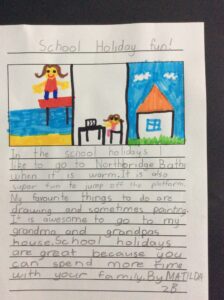 School Holiday fun!
In the school holidays I
like to go to Northbridge Baths
when it is warm. It is also
super fun to jump off the platform.
My favourite things to do are
drawing and sometimes painting.
It is awesome to go to my
grandma and grandpas
house. School holidays
are great because you
can spend more time
with your family. By MATILDA
2B